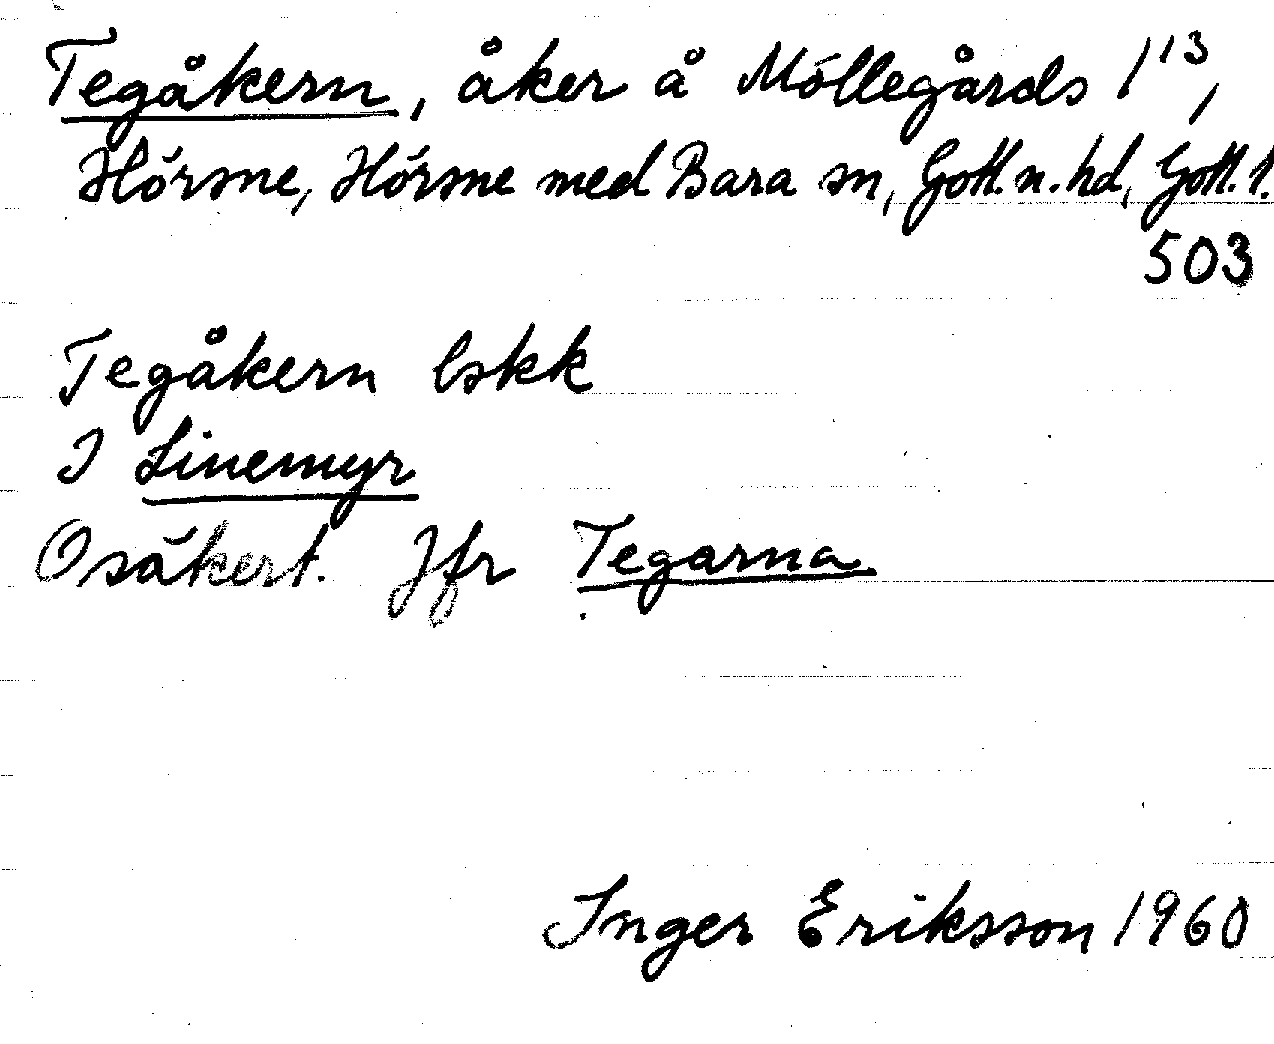 Tegåkern, åker å Möllegårds 1¹³,
Hörsne, Hörsne med Bara sn, Gotl. n. hd, Gotl. l.
503
Tegåkern lskk
I Linemyr
Osäkert. Jfr Tegarna
Inger Eriksson 1960